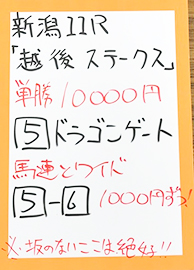 新潟11R
「越後ステークス」
単勝10000円
5 ドラゴンゲート
馬連とワイド
5-6 1000円ずつ!
※坂のないここは絶好!!